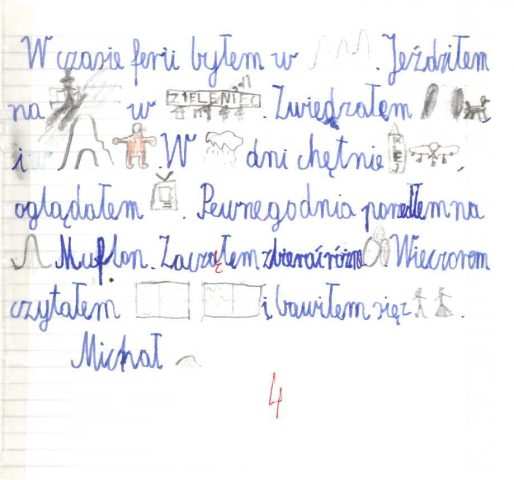 W czasie ferii byłem w . Jeździłem
na w ZIELENIEC . Zwiedzałem
i w . W dni chętnie ,
oglądałem . Pewnego dnia poszedłem na
Muflon. Zacząłem zbierać różne . Wieczorem
czytałem i bawiłem się z .
Michał
4